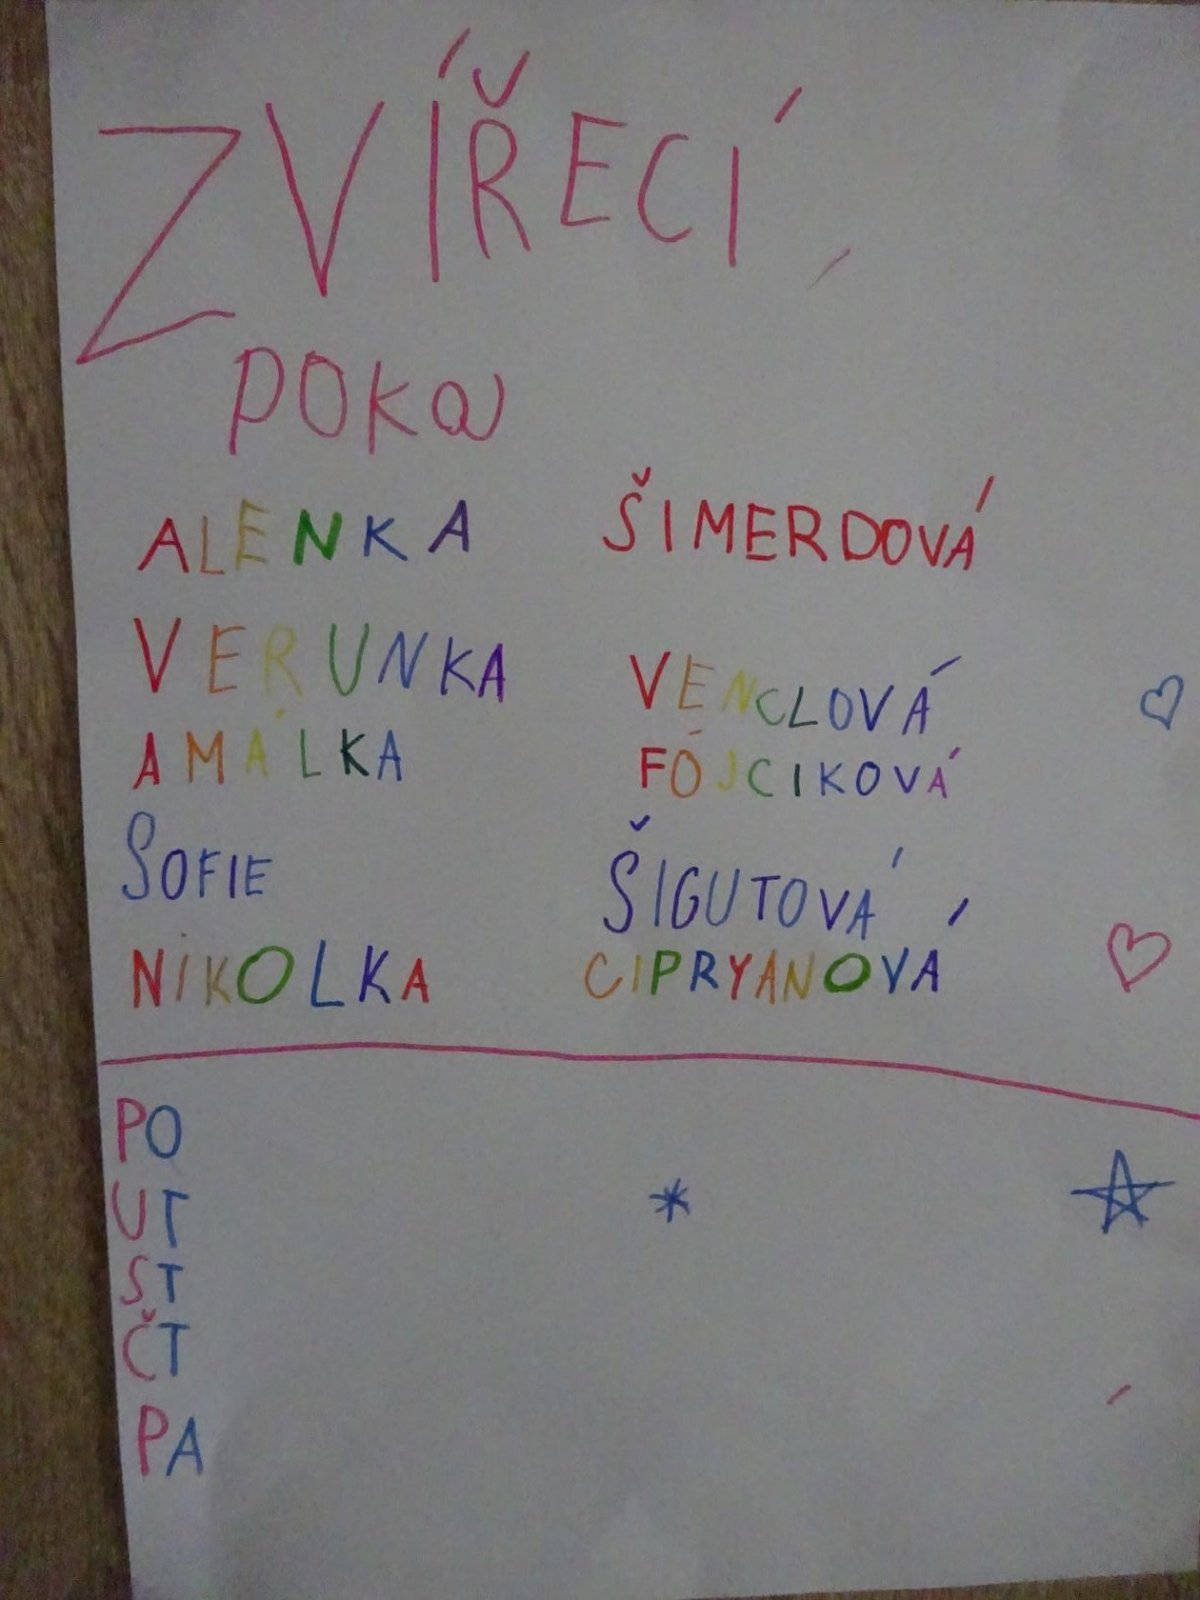 ZVÍŘECÍ
POKOJ
ALENKA ŠIMERDOVÁ
VERUNKA VENCLOVÁ
AMÁLKA FÓJCIKOVÁ
SOFIE ŠIGUTOVÁ
NIKOLKA CIPRYANOVÁ
PO
UT
ST
ČT
PA